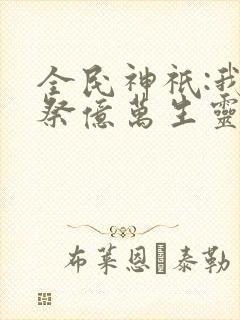 全民神祇:我
祭億萬生靈
布萊恩·泰勒